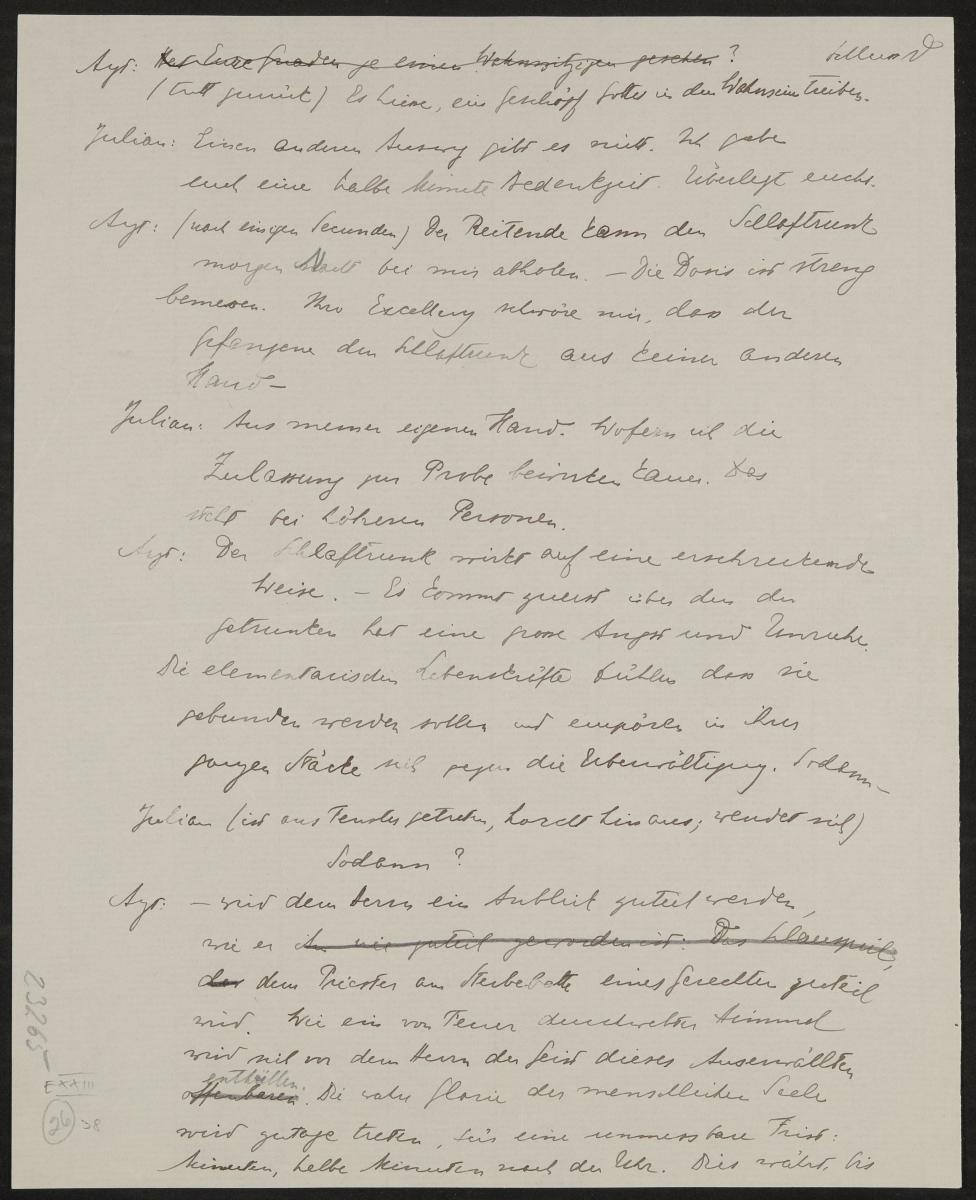 Arzt: Hat Euer Gnaden je einen Wahnwitzigen gesehen?
(tritt zurück) Es hiesse, ein Geschöpf Gottes in den Wahnsinn treiben.
Julian: Einen anderen Ausweg gibt es nicht. Ich gebe
euch eine halbe Minute Bedenkzeit. Überlegt euchs.
Arzt: (nach einigen Secunden) Der Reitende kann den Schlaftrunk
morgen Nacht bei mir abholen. – Die Dosis ist streng
bemessen. Ihro Excellenz schwöre mir, dass der
Gefangene den Schlaftrunk aus keiner anderen
Hand –
Julian: Aus meiner eigenen Hand. Wofern ich die
Zulassung zur Probe bewirken kann. Das
steht bei höheren Personen.
Arzt: Der Schlaftrunk wirkt auf eine erschreckende
Weise. – Es kommt zuerst über den der
getrunken hat eine grosse Angst und Unruhe.
Die elementarischen Lebenskräfte fühlen dass sie
gebunden werden sollen und empören in ihrer
ganzen Stärke sich gegen die Überwältigung. Sodann –
Julian (ist ans Fenster getreten, horcht hinaus; wendet sich)
Sodann?
Arzt: – wird dem Herrn ein Anblick zuteil werden,
wie er zuteil geworden ist: Das Schauspiel,
das dem Priester am Sterbebette eines Gerechten zuteil
wird. Wie ein von Feuer durchwehter Himmel
wird sich vor dem Herrn der Geist dieses Auserwählten
enthüllen.
offenbaren. Die wahre Glorie der menschlichen Seele
wird zutage treten, für eine unmessbare Frist:
Minuten, halbe Minuten nach der Uhr. Dies währt, bis
23265
E XXIII
26
38